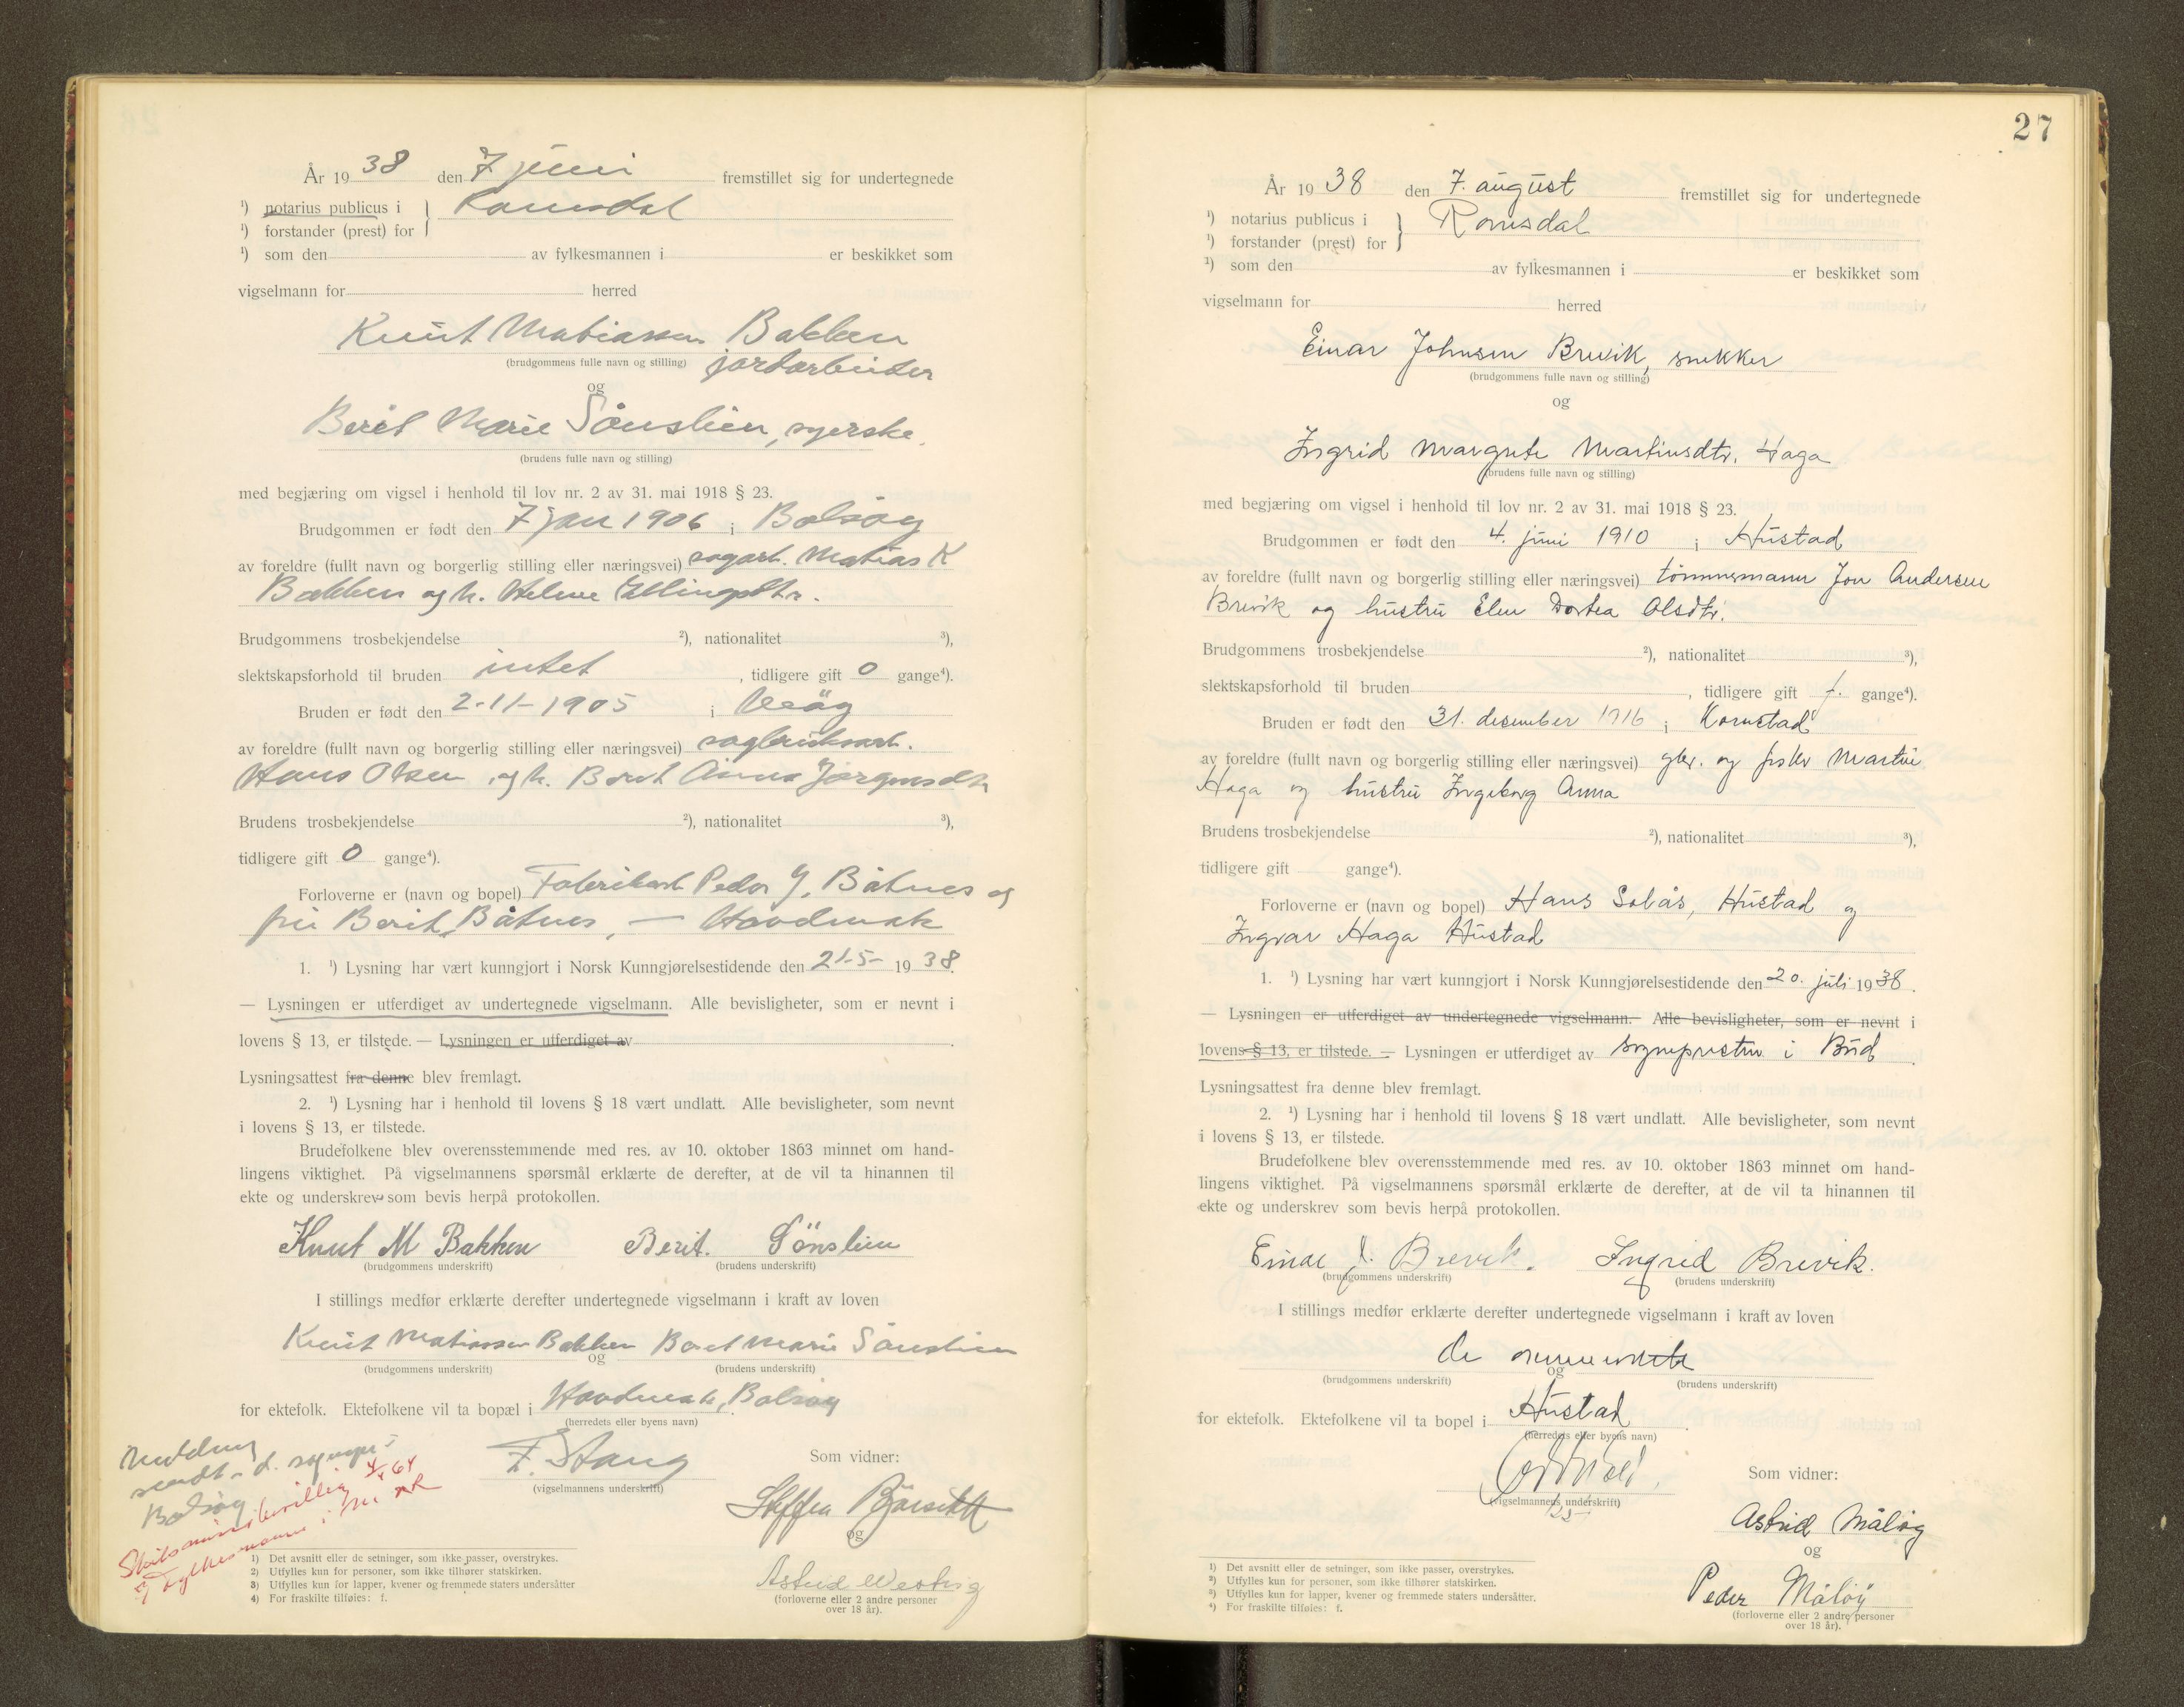 År 19 38 den 7 juni fremstillet sig for undertegnede
¹) notarius publicus i } Romsdal
¹) forstander (prest) for
¹) som den av fylkesmannen i er beskikket som
vigselmann for herred
Knut Matiassen Bakken
(brudgommens fulle navn og stilling) jordarbeider
og
Berit Marie Sönslien, syerske.
(brudens fulle navn og stilling)
med begjæring om vigsel i henhold til lov nr. 2 av 31. mai 1918 § 23.
Brudgommen er født den 7 jan 1906 i Bolsøy
av foreldre (fullt navn og borgerlig stilling eller næringsvei) sagarb. Matias K
Bakken og h. Helene Ellingsdtr.
Brudgommens trosbekjendelse ²), nationalitet ³),
slektskapsforhold til bruden intet, tidligere gift 0 gange⁴).
Bruden er født den 2-11-1905 i Veøy
av foreldre (fullt navn og borgerlig stilling eller næringsvei) sagbruksarb.
Hans Olsen og h. Berit Anna Jørgensdtr
Brudens trosbekjendelse ²), nationalitet ³),
tidligere gift 0 gange⁴).
Forloverne er (navn og bopel) Fabrikarb. Peder J. Båtnes og
fru Berit Båtnes, — Hovdenak
1. ¹) Lysning har vært kunngjort i Norsk Kunngjørelsestidende den 21-5- 19 38.
— Lysningen er utferdiget av undertegnede vigselmann. Alle bevisligheter, som er nevnt i
lovens § 13, er tilstede. — Lysningen er utferdiget av
Lysningsattest fra denne blev fremlagt.
2. ¹) Lysning har i henhold til lovens § 18 vært undlatt. Alle bevisligheter, som nevnt
i lovens § 13, er tilstede.
Brudefolkene blev overensstemmende med res. av 10. oktober 1863 minnet om hand-
lingens viktighet. På vigselmannens spørsmål erklærte de derefter, at de vil ta hinannen til
ekte og underskrev som bevis herpå protokollen.
Knut M Bakken Berit. Sönslien
(brudgommens underskrift) (brudens underskrift)
I stillings medfør erklærte derefter undertegnede vigselmann i kraft av loven
Knut Matiassen Bakken og Berit Marie Sönslien
(brudgommens underskrift) (brudens underskrift)
for ektefolk. Ektefolkene vil ta bopæl i Hovdenak, Bolsøy
(herredets eller byens navn)
Melding
sendt d. sognepr. i
Bolsøy
Skilsmissebevilling 64
fylkesmannen i M. og R
F. Stang
(vigselmannens underskrift)
Som vidner:
Steffen
og
Astrid
(forloverne eller 2 andre personer
over 18 år).
1) Det avsnitt eller de setninger, som ikke passer, overstrykes.
2) Utfylles kun for personer, som ikke tilhører statskirken.
3) Utfylles kun for lapper, kvener og fremmede staters undersåtter
4) For fraskilte tilføies: f.
27
År 19 38 den 7. august fremstillet sig for undertegnede
¹) notarius publicus i } Romsdal
¹) forstander (prest) for
¹) som den av fylkesmannen i er beskikket som
vigselmann for herred
Einar Johnsen Brevik, snekker
(brudgommens fulle navn og stilling)
og
Ingrid Margrete Martinsdtr. Haga
(brudens fulle navn og stilling)
med begjæring om vigsel i henhold til lov nr. 2 av 31. mai 1918 § 23.
Brudgommen er født den 4. juni 1910 i Hustad
av foreldre (fullt navn og borgerlig stilling eller næringsvei) tømmermann Jon Andersen
Brevik og hustru Elen Dortea Olsdtr.
Brudgommens trosbekjendelse ²), nationalitet ³),
slektskapsforhold til bruden , tidligere gift f. gange⁴).
Bruden er født den 31. desember 1916 i Kornstad
av foreldre (fullt navn og borgerlig stilling eller næringsvei) gbr. og fisker Martin
Haga og hustru Ingeborg Anna
Brudens trosbekjendelse ²), nationalitet ³),
tidligere gift gange⁴).
Forloverne er (navn og bopel) Hans Solås, Hustad og
Ingvar Haga Hustad
1. ¹) Lysning har vært kunngjort i Norsk Kunngjørelsestidende den 20. juli 19 38.
— Lysningen er utferdiget av undertegnede vigselmann. Alle bevisligheter, som er nevnt i
lovens § 13, er tilstede. — Lysningen er utferdiget av sognepresten i Bud
Lysningsattest fra denne blev fremlagt.
2. ¹) Lysning har i henhold til lovens § 18 vært undlatt. Alle bevisligheter, som nevnt
i lovens § 13, er tilstede.
Brudefolkene blev overensstemmende med res. av 10. oktober 1863 minnet om hand-
lingens viktighet. På vigselmannens spørsmål erklærte de derefter, at de vil ta hinannen til
ekte og underskrev som bevis herpå protokollen.
Einar J. Brevik. Ingrid Brevik.
(brudgommens underskrift) (brudens underskrift)
I stillings medfør erklærte derefter undertegnede vigselmann i kraft av loven
de ovennevnte
og
(brudgommens underskrift) (brudens underskrift)
for ektefolk. Ektefolkene vil ta bopel i Hustad
(herredets eller byens navn)
(vigselmannens underskrift)
Som vidner:
Astrid Måløy
og
Peder Måløy
(forloverne eller 2 andre personer
over 18 år).
¹) Det avsnitt eller de setninger, som ikke passer, overstrykes.
²) Utfylles kun for personer, som ikke tilhører statskirken.
³) Utfylles kun for lapper, kvener og fremmede staters undersåtter.
⁴) For fraskilte tilføies: f.